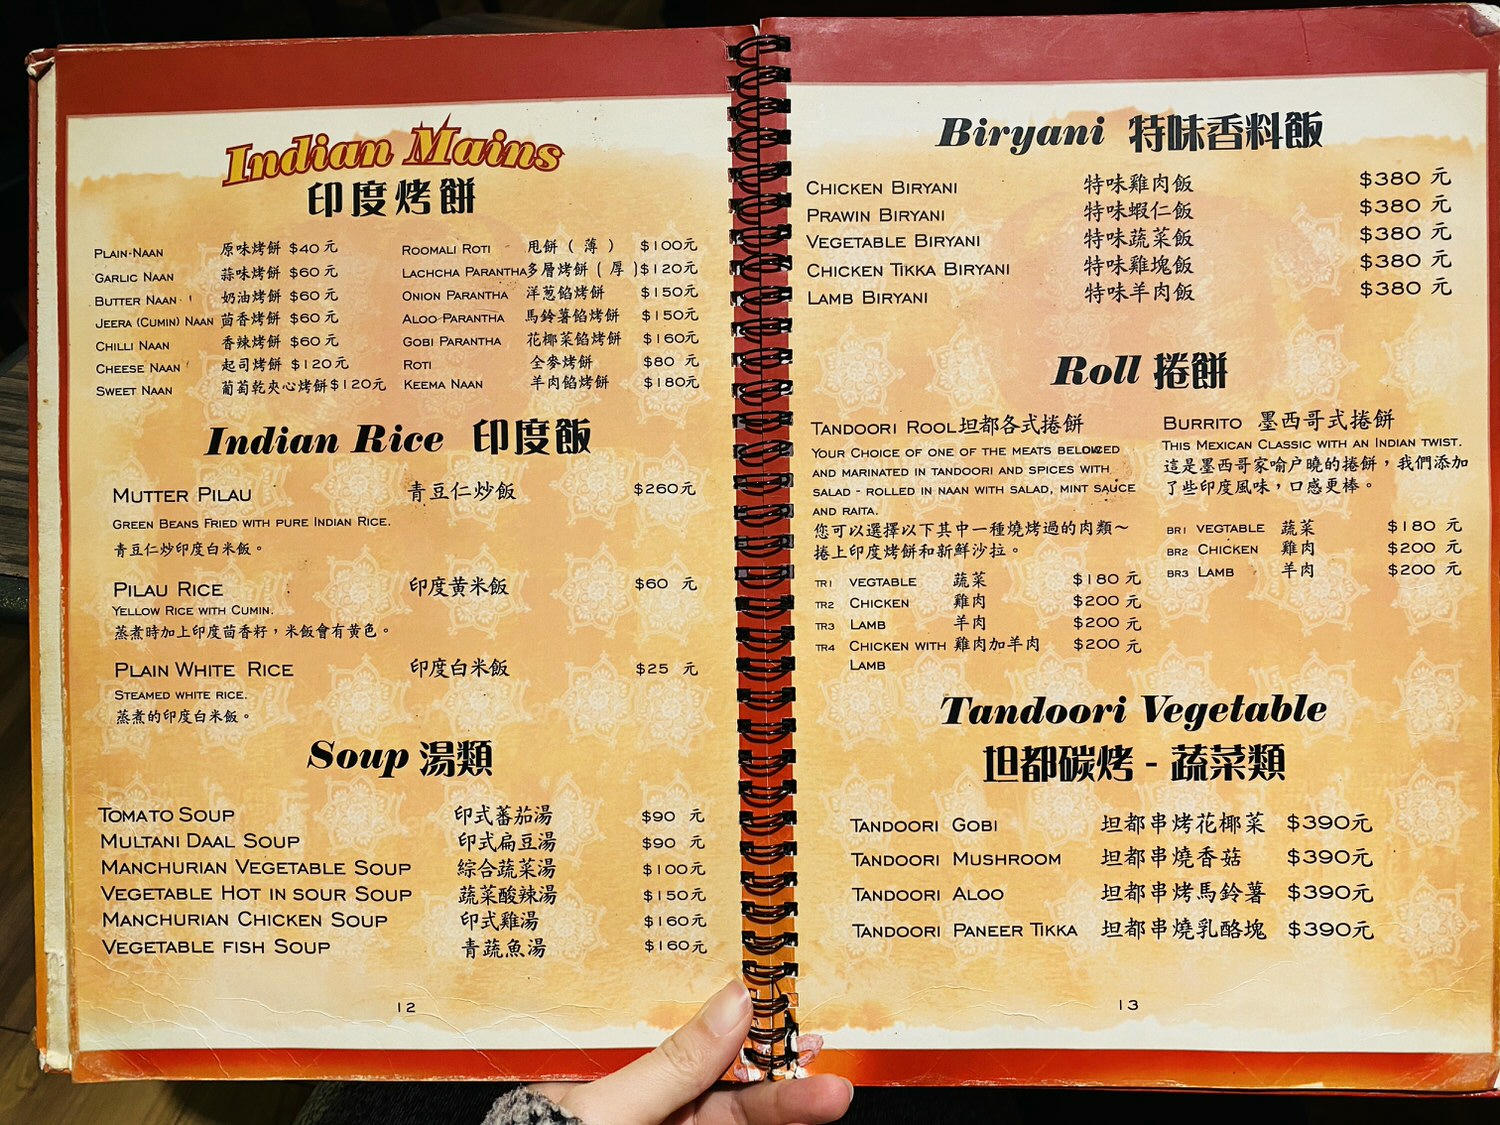 Indian Mains
印度烤餅
PLAIN-NAAN 原味烤餅 $40元
GARLIC NAAN 蒜味烤餅 $60元
BUTTER NAAN 奶油烤餅 $60元
JEERA (CUMIN) NAAN 茴香烤餅 $60元
CHILLI NAAN 香辣烤餅 $60元
CHEESE NAAN 起司烤餅 $120元
SWEET NAAN 葡萄乾夾心烤餅$120元
ROOMALI ROTI 甩餅（薄） $100元
LACHCHA PARANTHA多層烤餅（厚）$120元
ONION PARANTHA 洋葱餡烤餅 $150元
ALOO PARANTHA 馬鈴薯餡烤餅 $150元
GOBI PARANTHA 花椰菜餡烤餅 $160元
ROTI 全麥烤餅 $80 元
KEEMA NAAN 羊肉餡烤餅 $180元
Indian Rice 印度飯
MUTTER PILAU 青豆仁炒飯 $260元
GREEN BEANS FRIED WITH PURE INDIAN RICE.
青豆仁炒印度白米飯。
PILAU RICE 印度黃米飯 $60 元
YELLOW RICE WITH CUMIN.
蒸煮時加上印度茴香籽，米飯會有黃色。
PLAIN WHITE RICE 印度白米飯 $25 元
STEAMED WHITE RICE.
蒸煮的印度白米飯。
Soup 湯類
TOMATO SOUP 印式蕃茄湯 $90 元
MULTANI DAAL SOUP 印式扁豆湯 $90 元
MANCHURIAN VEGETABLE SOUP 綜合蔬菜湯 $100元
VEGETABLE HOT IN SOUR SOUP 蔬菜酸辣湯 $150元
MANCHURIAN CHICKEN SOUP 印式雞湯 $160元
VEGETABLE FISH SOUP 青蔬魚湯 $160元
12
Biryani 特味香料飯
CHICKEN BIRYANI 特味雞肉飯 $380 元
PRAWIN BIRYANI 特味蝦仁飯 $380 元
VEGETABLE BIRYANI 特味蔬菜飯 $380 元
CHICKEN TIKKA BIRYANI 特味雞塊飯 $380 元
LAMB BIRYANI 特味羊肉飯 $380 元
Roll 捲餅
TANDOORI ROOL坦都各式捲餅
YOUR CHOICE OF ONE OF THE MEATS BELOWCED
AND MARINATED IN TANDOORI AND SPICES WITH
SALAD - ROLLED IN NAAN WITH SALAD, MINT SAUCE
AND RAITA.
您可以選擇以下其中一種燒烤過的肉類～
捲上印度烤餅和新鮮沙拉。
TR1 VEGTABLE 蔬菜 $180 元
TR2 CHICKEN 雞肉 $200 元
TR3 LAMB 羊肉 $200 元
TR4 CHICKEN WITH 雞肉加羊肉 $200 元
LAMB
BURRITO 墨西哥式捲餅
THIS MEXICAN CLASSIC WITH AN INDIAN TWIST.
這是墨西哥家喻户曉的捲餅，我們添加
了些印度風味，口感更棒。
BR1 VEGTABLE 蔬菜 $180 元
BR2 CHICKEN 雞肉 $200 元
BR3 LAMB 羊肉 $200 元
Tandoori Vegetable
坦都碳烤 - 蔬菜類
TANDOORI GOBI 坦都串烤花椰菜 $390元
TANDOORI MUSHROOM 坦都串燒香菇 $390元
TANDOORI ALOO 坦都串烤馬鈴薯 $390元
TANDOORI PANEER TIKKA 坦都串燒乳酪塊 $390元
13